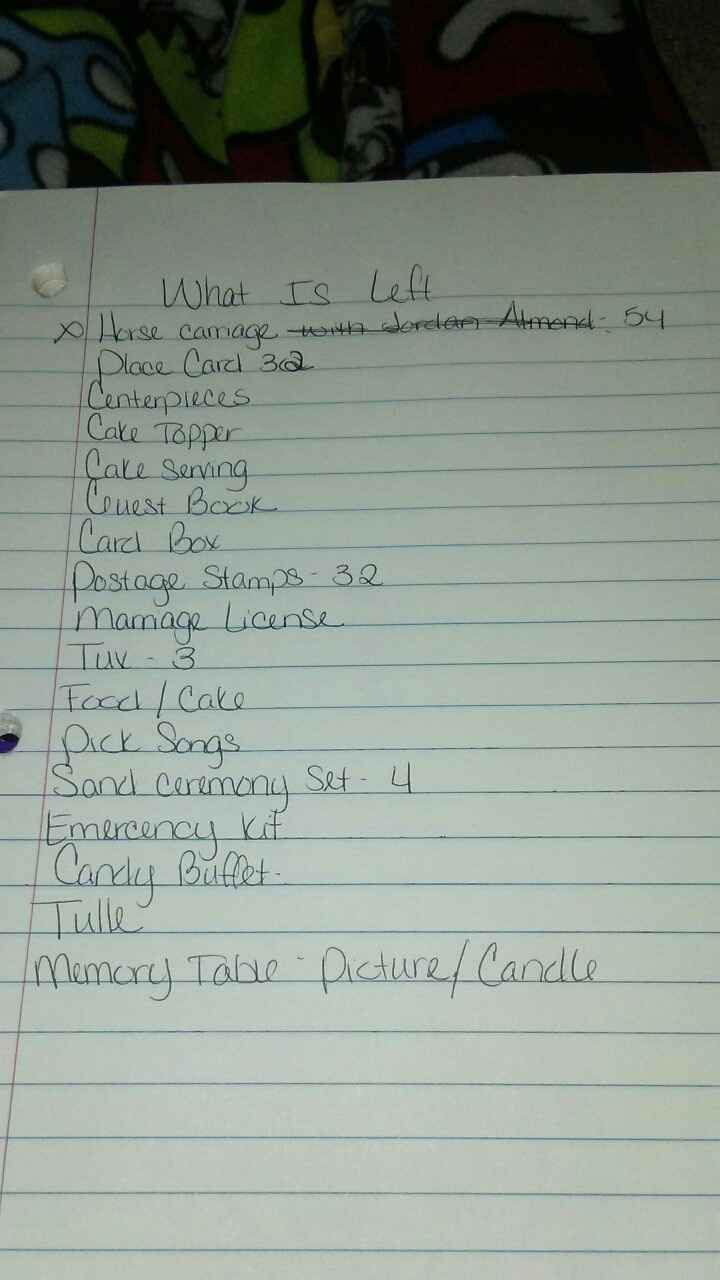 What Is Left
X Horse carriage with Jordan Almond - 54
Place Card 32
Centerpieces
Cake Topper
Cake Serving
Guest Book
Card Box
Postage Stamps - 32
Marriage License
Tux - 3
Food / Cake
Pick Songs
Sand Ceremony Set - 4
Emercency Kit
Candy Buffet -
Tulle
Memory Table - Picture / Candle